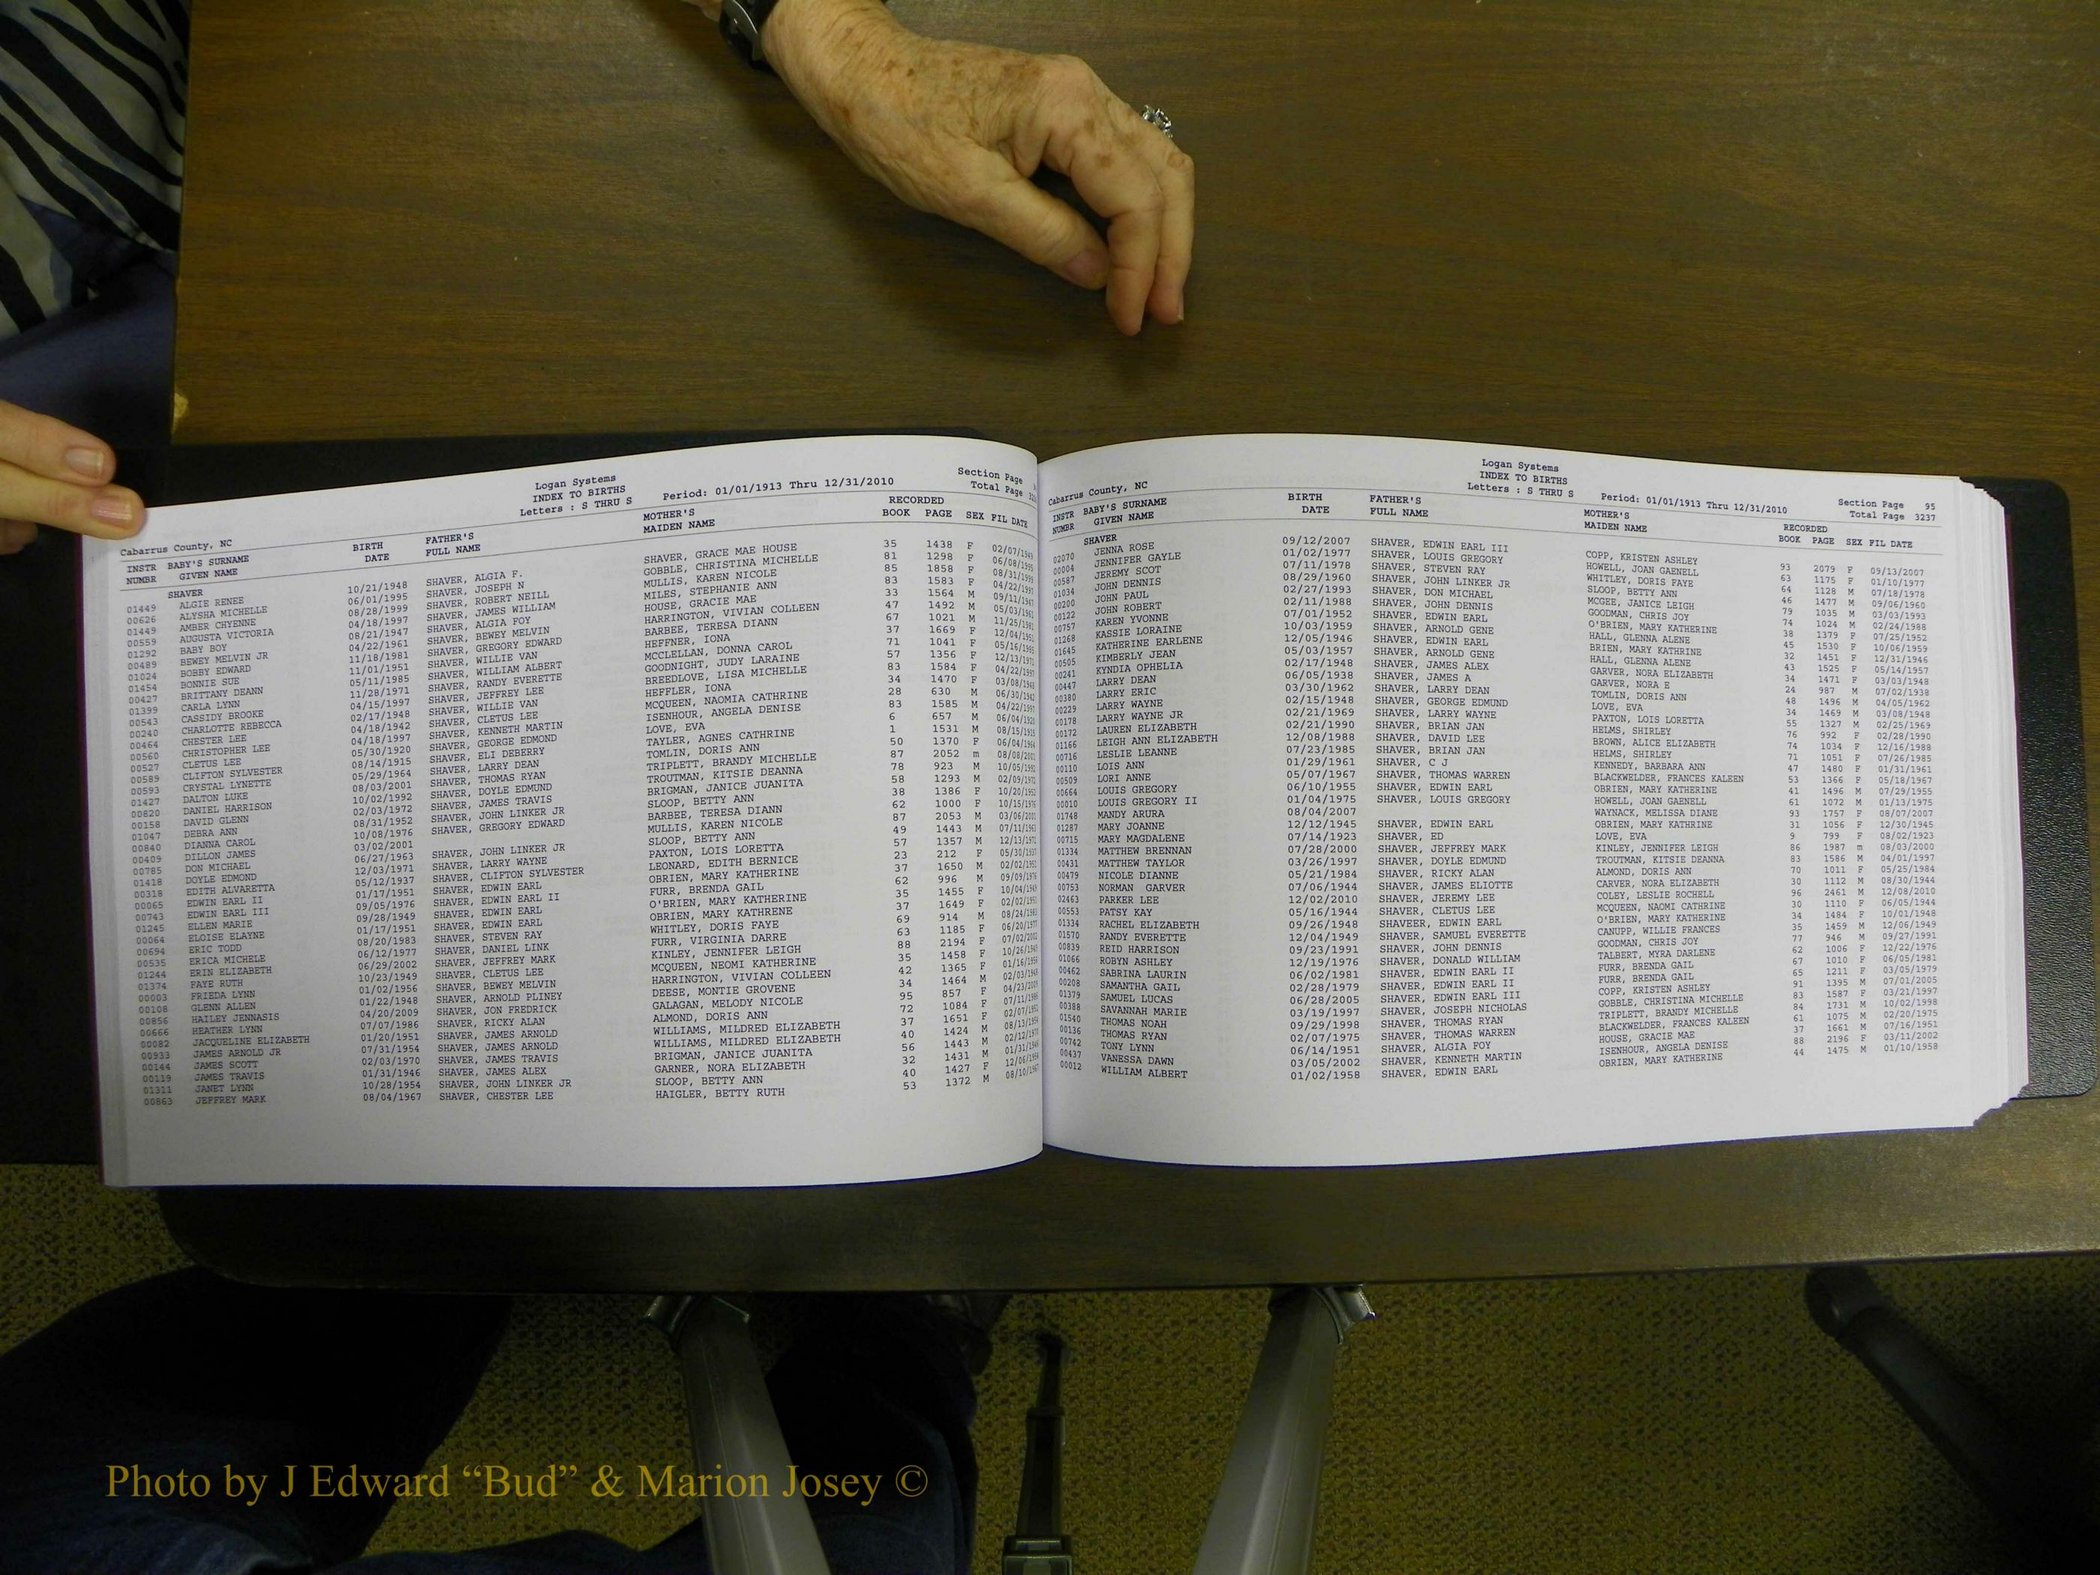 Logan Systems
INDEX TO BIRTHS
Letters : S THRU S
Period: 01/01/1913 Thru 12/31/2010
Section Page
Total Page
Cabarrus County, NC
INSTR BABY'S SURNAME BIRTH FATHER'S MOTHER'S RECORDED
NUMBR GIVEN NAME DATE FULL NAME MAIDEN NAME BOOK PAGE SEX FIL DATE
SHAVER
01449 ALGIE RENEE 10/21/1948 SHAVER, ALGIA F. SHAVER, GRACE MAE HOUSE 35 1438 F 02/07/1949
00626 ALYSHA MICHELLE 06/01/1995 SHAVER, JOSEPH N GOBBLE, CHRISTINA MICHELLE 81 1298 F 06/08/1995
01449 AMBER CHYENNE 08/28/1999 SHAVER, ROBERT NEILL MULLIS, KAREN NICOLE 85 1858 F 08/31/1999
00559 AUGUSTA VICTORIA 04/18/1997 SHAVER, JAMES WILLIAM MILES, STEPHANIE ANN 83 1583 F 04/22/1997
01292 BABY BOY 08/21/1947 SHAVER, ALGIA FOY HOUSE, GRACIE MAE 33 1564 M 09/11/1947
00489 BEWEY MELVIN JR 04/22/1961 SHAVER, BEWEY MELVIN HARRINGTON, VIVIAN COLLEEN 47 1492 M 05/03/1961
01024 BOBBY EDWARD 11/18/1981 SHAVER, GREGORY EDWARD BARBEE, TERESA DIANN 67 1021 M 11/25/1981
01454 BONNIE SUE 11/01/1951 SHAVER, WILLIE VAN HEFFNER, IONA 37 1669 F 12/04/1951
00427 BRITTANY DEANN 05/11/1985 SHAVER, WILLIAM ALBERT MCCLELLAN, DONNA CAROL 71 1041 F 05/16/1985
01399 CARLA LYNN 11/28/1971 SHAVER, RANDY EVERETTE GOODNIGHT, JUDY LARAINE 57 1356 F 12/13/1971
00543 CASSIDY BROOKE 04/15/1997 SHAVER, JEFFREY LEE BREEDLOVE, LISA MICHELLE 83 1584 F 04/22/1997
00240 CHARLOTTE REBECCA 02/17/1948 SHAVER, WILLIE VAN HEFFLER, IONA 34 1470 F 03/08/1948
00464 CHESTER LEE 04/18/1942 SHAVER, CLETUS LEE MCQUEEN, NAOMIA CATHRINE 28 630 M 06/30/1942
00560 CHRISTOPHER LEE 04/18/1997 SHAVER, KENNETH MARTIN ISENHOUR, ANGELA DENISE 83 1585 M 04/22/1997
00527 CLETUS LEE 05/30/1920 SHAVER, GEORGE EDMOND LOVE, EVA 6 657 M 06/04/1920
00589 CLIFTON SYLVESTER 08/14/1915 SHAVER, ELI DEBERRY TAYLER, AGNES CATHRINE 1 1531 M 08/15/1915
00593 CRYSTAL LYNETTE 05/29/1964 SHAVER, LARRY DEAN TOMLIN, DORIS ANN 50 1370 F 06/04/1964
01427 DALTON LUKE 08/03/2001 SHAVER, THOMAS RYAN TRIPLETT, BRANDY MICHELLE 87 2052 m 08/08/2001
00820 DANIEL HARRISON 10/02/1992 SHAVER, DOYLE EDMUND TROUTMAN, KITSIE DEANNA 78 923 M 10/05/1992
00158 DAVID GLENN 02/03/1972 SHAVER, JAMES TRAVIS BRIGMAN, JANICE JUANITA 58 1293 M 02/09/1972
01047 DEBRA ANN 08/31/1952 SHAVER, JOHN LINKER JR SLOOP, BETTY ANN 38 1386 F 10/20/1952
00840 DIANNA CAROL 10/08/1976 SHAVER, GREGORY EDWARD BARBEE, TERESA DIANN 62 1000 F 10/15/1976
00409 DILLON JAMES 03/02/2001 MULLIS, KAREN NICOLE 87 2053 M 03/06/2001
00785 DON MICHAEL 06/27/1963 SHAVER, JOHN LINKER JR SLOOP, BETTY ANN 49 1443 M 07/11/1963
01418 DOYLE EDMOND 12/03/1971 SHAVER, LARRY WAYNE PAXTON, LOIS LORETTA 57 1357 M 12/13/1971
00318 EDITH ALVARETTA 05/12/1937 SHAVER, CLIFTON SYLVESTER LEONARD, EDITH BERNICE 23 212 F 05/30/1937
00065 EDWIN EARL II 01/17/1951 SHAVER, EDWIN EARL OBRIEN, MARY KATHERINE 37 1650 M 02/02/1951
00743 EDWIN EARL III 09/05/1976 SHAVER, EDWIN EARL II FURR, BRENDA GAIL 62 996 M 09/09/1976
01245 ELLEN MARIE 09/28/1949 SHAVER, EDWIN EARL O'BRIEN, MARY KATHERINE 35 1455 F 10/04/1949
00064 ELOISE ELAYNE 01/17/1951 SHAVER, EDWIN EARL OBRIEN, MARY KATHRENE 37 1649 F 02/02/1951
00694 ERIC TODD 08/20/1983 SHAVER, STEVEN RAY WHITLEY, DORIS FAYE 69 914 M 08/24/1983
00535 ERICA MICHELE 06/12/1977 SHAVER, DANIEL LINK FURR, VIRGINIA DARRE 63 1185 F 06/20/1977
01244 ERIN ELIZABETH 06/29/2002 SHAVER, JEFFREY MARK KINLEY, JENNIFER LEIGH 88 2194 F 07/02/2002
01374 FAYE RUTH 10/23/1949 SHAVER, CLETUS LEE MCQUEEN, NEOMI KATHERINE 35 1458 F 10/26/1949
00003 FRIEDA LYNN 01/02/1956 SHAVER, BEWEY MELVIN HARRINGTON, VIVIAN COLLEEN 42 1365 F 01/16/1956
00108 GLENN ALLEN 01/22/1948 SHAVER, ARNOLD PLINEY DEESE, MONTIE GROVENE 34 1464 M 02/03/1948
00856 HAILEY JENNASIS 04/20/2009 SHAVER, JON FREDRICK GALAGAN, MELODY NICOLE 95 857 F 04/23/2009
00666 HEATHER LYNN 07/07/1986 SHAVER, RICKY ALAN ALMOND, DORIS ANN 72 1084 F 07/11/1986
00082 JACQUELINE ELIZABETH 01/20/1951 SHAVER, JAMES ARNOLD WILLIAMS, MILDRED ELIZABETH 37 1651 F 02/07/1951
00933 JAMES ARNOLD JR 07/31/1954 SHAVER, JAMES ARNOLD WILLIAMS, MILDRED ELIZABETH 40 1424 M 08/13/1954
00144 JAMES SCOTT 02/03/1970 SHAVER, JAMES TRAVIS BRIGMAN, JANICE JUANITA 56 1443 M 02/12/1970
00119 JAMES TRAVIS 01/31/1946 SHAVER, JAMES ALEX GARNER, NORA ELIZABETH 32 1431 M 01/31/1946
01311 JANET LYNN 10/28/1954 SHAVER, JOHN LINKER JR SLOOP, BETTY ANN 40 1427 F 12/06/1954
00863 JEFFREY MARK 08/04/1967 SHAVER, CHESTER LEE HAIGLER, BETTY RUTH 53 1372 M 08/10/1967
Logan Systems
INDEX TO BIRTHS
Letters : S THRU S
Period: 01/01/1913 Thru 12/31/2010
Section Page 95
Total Page 3237
Cabarrus County, NC
INSTR BABY'S SURNAME BIRTH FATHER'S MOTHER'S RECORDED
NUMBR GIVEN NAME DATE FULL NAME MAIDEN NAME BOOK PAGE SEX FIL DATE
SHAVER
02070 JENNA ROSE 09/12/2007 SHAVER, EDWIN EARL III COPP, KRISTEN ASHLEY 93 2079 F 09/13/2007
00004 JENNIFER GAYLE 01/02/1977 SHAVER, LOUIS GREGORY HOWELL, JOAN GAENELL 63 1175 F 01/10/1977
00587 JEREMY SCOT 07/11/1978 SHAVER, STEVEN RAY WHITLEY, DORIS FAYE 64 1128 M 07/18/1978
01034 JOHN DENNIS 08/29/1960 SHAVER, JOHN LINKER JR SLOOP, BETTY ANN 46 1477 M 09/06/1960
00200 JOHN PAUL 02/27/1993 SHAVER, DON MICHAEL MCGEE, JANICE LEIGH 79 1035 M 03/03/1993
00122 JOHN ROBERT 02/11/1988 SHAVER, JOHN DENNIS GOODMAN, CHRIS JOY 74 1024 M 02/24/1988
00757 KAREN YVONNE 07/01/1952 SHAVER, EDWIN EARL O'BRIEN, MARY KATHERINE 38 1379 F 07/25/1952
01268 KASSIE LORAINE 10/03/1959 SHAVER, ARNOLD GENE HALL, GLENNA ALENE 45 1530 F 10/06/1959
01645 KATHERINE EARLENE 12/05/1946 SHAVER, EDWIN EARL BRIEN, MARY KATHRINE 32 1451 F 12/31/1946
00505 KIMBERLY JEAN 05/03/1957 SHAVER, ARNOLD GENE HALL, GLENNA ALENE 43 1525 F 05/14/1957
00241 KYNDIA OPHELIA 02/17/1948 SHAVER, JAMES ALEX GARVER, NORA ELIZABETH 34 1471 F 03/03/1948
00447 LARRY DEAN 06/05/1938 SHAVER, JAMES A GARVER, NORA E 24 987 M 07/02/1938
00380 LARRY ERIC 03/30/1962 SHAVER, LARRY DEAN TOMLIN, DORIS ANN 48 1496 M 04/05/1962
00229 LARRY WAYNE 02/15/1948 SHAVER, GEORGE EDMUND LOVE, EVA 34 1469 M 03/08/1948
00178 LARRY WAYNE JR 02/21/1969 SHAVER, LARRY WAYNE PAXTON, LOIS LORETTA 55 1327 M 02/25/1969
00172 LAUREN ELIZABETH 02/21/1990 SHAVER, BRIAN JAN HELMS, SHIRLEY 76 992 F 02/28/1990
01166 LEIGH ANN ELIZABETH 12/08/1988 SHAVER, DAVID LEE BROWN, ALICE ELIZABETH 74 1034 F 12/16/1988
00716 LESLIE LEANNE 07/23/1985 SHAVER, BRIAN JAN HELMS, SHIRLEY 71 1051 F 07/26/1985
00110 LOIS ANN 01/29/1961 SHAVER, C J KENNEDY, BARBARA ANN 47 1480 F 01/31/1961
00509 LORI ANNE 05/07/1967 SHAVER, THOMAS WARREN BLACKWELDER, FRANCES KALEEN 53 1366 F 05/18/1967
00664 LOUIS GREGORY 06/10/1955 SHAVER, EDWIN EARL OBRIEN, MARY KATHERINE 41 1496 M 07/29/1955
00010 LOUIS GREGORY II 01/04/1975 SHAVER, LOUIS GREGORY HOWELL, JOAN GAENELL 61 1072 M 01/13/1975
01748 MANDY ARURA 08/04/2007 WAYNACK, MELISSA DIANE 93 1757 F 08/07/2007
01287 MARY JOANNE 12/12/1945 SHAVER, EDWIN EARL OBRIEN, MARY KATHRINE 31 1056 F 12/30/1945
00715 MARY MAGDALENE 07/14/1923 SHAVER, ED LOVE, EVA 9 799 F 08/02/1923
01334 MATTHEW BRENNAN 07/28/2000 SHAVER, JEFFREY MARK KINLEY, JENNIFER LEIGH 86 1987 m 08/03/2000
00431 MATTHEW TAYLOR 03/26/1997 SHAVER, DOYLE EDMUND TROUTMAN, KITSIE DEANNA 83 1586 M 04/01/1997
00479 NICOLE DIANNE 05/21/1984 SHAVER, RICKY ALAN ALMOND, DORIS ANN 70 1011 F 05/25/1984
00753 NORMAN GARVER 07/06/1944 SHAVER, JAMES ELIOTTE CARVER, NORA ELIZABETH 30 1112 M 08/30/1944
02463 PARKER LEE 12/02/2010 SHAVER, JEREMY LEE COLEY, LESLIE ROCHELL 96 2461 M 12/08/2010
00553 PATSY KAY 05/16/1944 SHAVER, CLETUS LEE MCQUEEN, NAOMI CATHRINE 30 1110 F 06/05/1944
01334 RACHEL ELIZABETH 09/26/1948 SHAVER, EDWIN EARL O'BRIEN, MARY KATHERINE 34 1484 F 10/01/1948
01570 RANDY EVERETTE 12/04/1949 SHAVER, SAMUEL EVERETTE CANUPP, WILLIE FRANCES 35 1459 M 12/06/1949
00839 REID HARRISON 09/23/1991 SHAVER, JOHN DENNIS GOODMAN, CHRIS JOY 77 946 M 09/27/1991
01066 ROBYN ASHLEY 12/19/1976 SHAVER, DONALD WILLIAM TALBERT, MYRA DARLENE 62 1006 F 12/22/1976
00462 SABRINA LAURIN 06/02/1981 SHAVER, EDWIN EARL II FURR, BRENDA GAIL 67 1010 F 06/05/1981
00208 SAMANTHA GAIL 02/28/1979 SHAVER, EDWIN EARL II FURR, BRENDA GAIL 65 1211 F 03/05/1979
01379 SAMUEL LUCAS 06/28/2005 SHAVER, EDWIN EARL III COPP, KRISTEN ASHLEY 91 1395 M 07/01/2005
00388 SAVANNAH MARIE 03/19/1997 SHAVER, JOSEPH NICHOLAS GOBBLE, CHRISTINA MICHELLE 83 1587 F 03/21/1997
01540 THOMAS NOAH 09/29/1998 SHAVER, THOMAS RYAN TRIPLETT, BRANDY MICHELLE 84 1731 M 10/02/1998
00136 THOMAS RYAN 02/07/1975 SHAVER, THOMAS WARREN BLACKWELDER, FRANCES KALEEN 61 1075 M 02/20/1975
00742 TONY LYNN 06/14/1951 SHAVER, ALGIA FOY HOUSE, GRACIE MAE 37 1661 M 07/16/1951
00437 VANESSA DAWN 03/05/2002 SHAVER, KENNETH MARTIN ISENHOUR, ANGELA DENISE 88 2196 F 03/11/2002
00012 WILLIAM ALBERT 01/02/1958 SHAVER, EDWIN EARL OBRIEN, MARY KATHERINE 44 1475 M 01/10/1958
Photo by J Edward “Bud” & Marion Josey ©